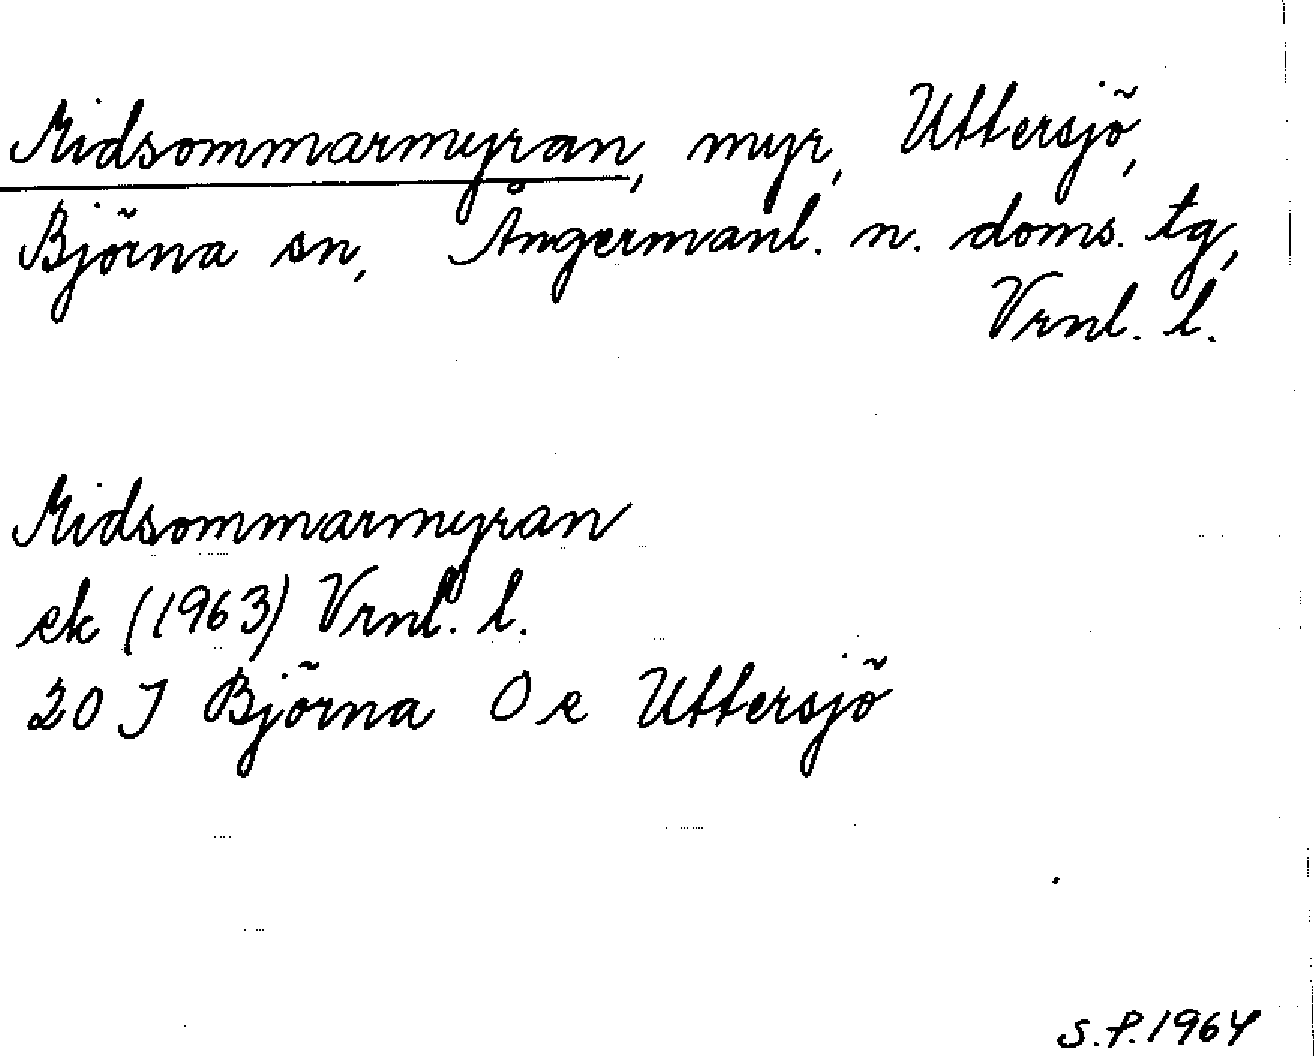 Midsommarmyran, myr, Uttersjö,
Björna sn, Ångermanl. n. doms. tg,
Vrnl. l.
Midsommarmyran
ek (1963) Vrnl. l.
20 J Björna O e Uttersjö
S.P. 1964